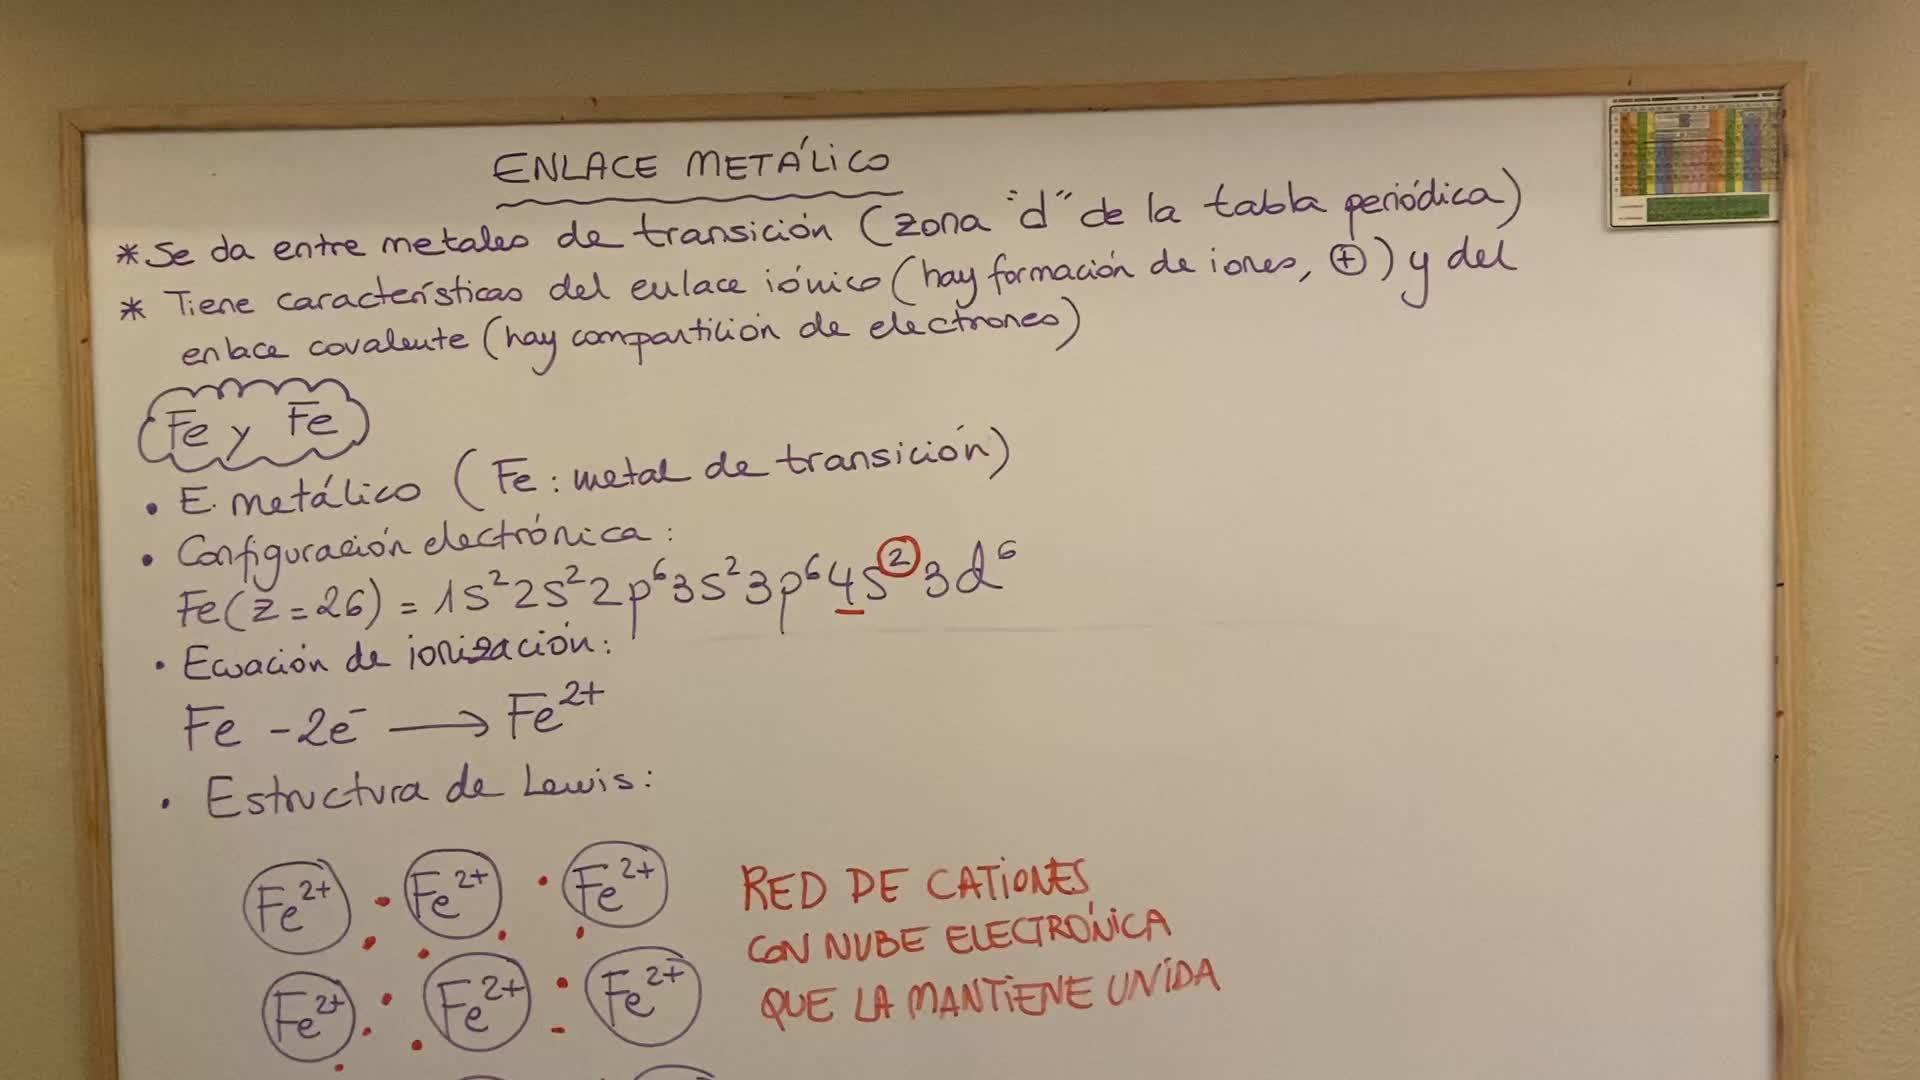 ENLACE METÁLICO
* Se da entre metales de transición (zona "d" de la tabla periódica)
* Tiene características del enlace iónico (hay formación de iones, ⊕) y del
enlace covalente (hay compartición de electrones)
Fe y Fe
• E. metálico (Fe: metal de transición)
• Configuración electrónica:
Fe (Z=26) = 1s² 2s² 2p⁶ 3s² 3p⁶ 4s² 3d⁶
• Ecuación de ionización:
Fe - 2e⁻ → Fe²⁺
• Estructura de Lewis:
Fe²⁺ Fe²⁺ Fe²⁺
RED DE CATIONES
CON NUBE ELECTRÓNICA
Fe²⁺ Fe²⁺ Fe²⁺
QUE LA MANTIENE UNIDA